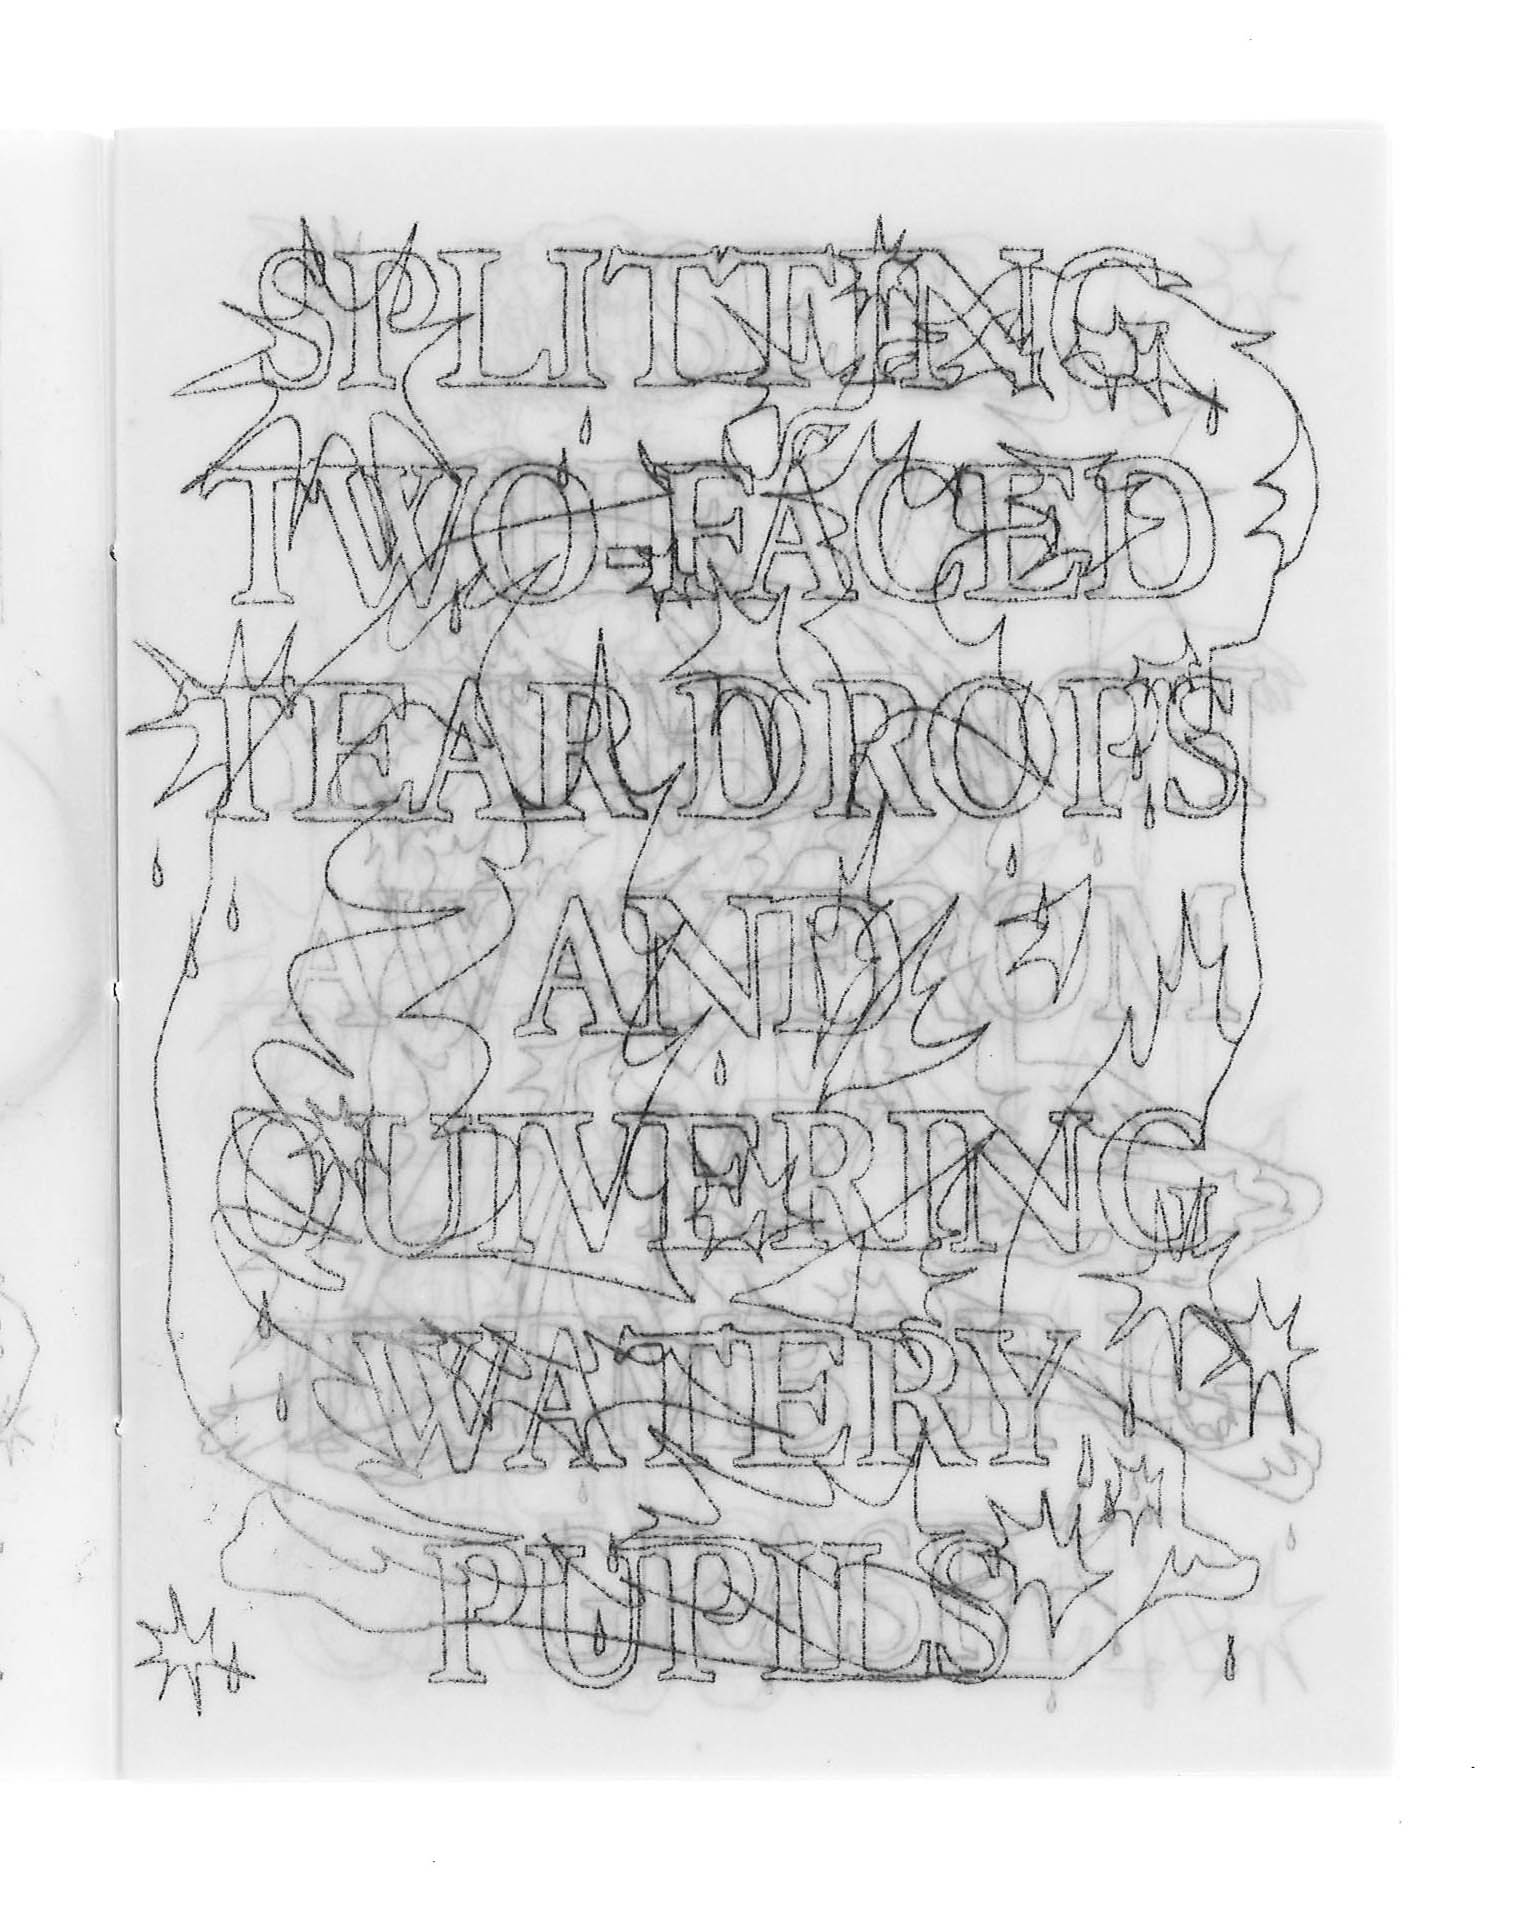 SPLITTING
TWO-FACED
TEAR DROPS
AND
QUIVERING
WATERY
PUPILS